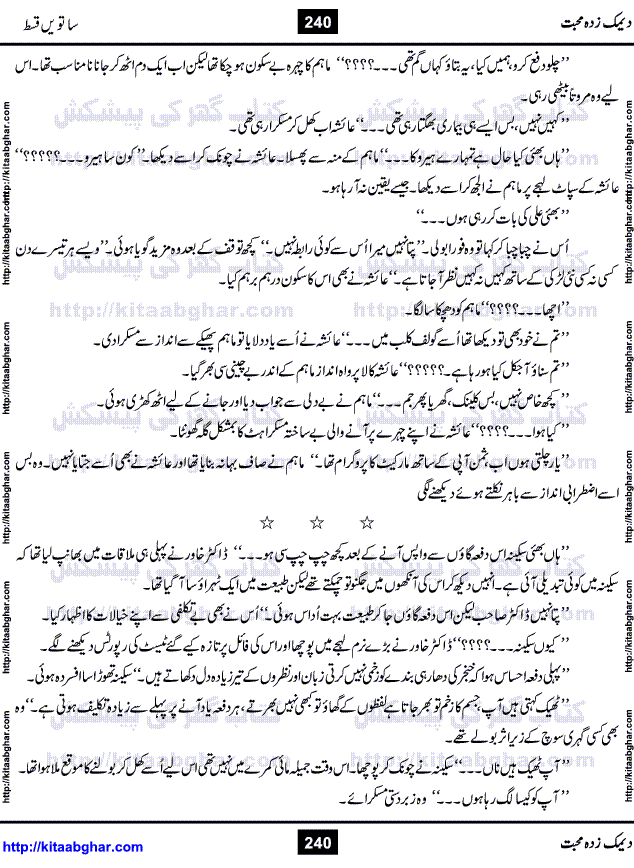 دیمک زدہ محبت
240
ساتویں قسط
’’چلو دفع کرو، ہمیں کیا، یہ بتاؤ کہاں گم تھی۔۔۔؟؟؟؟‘‘ ماہم کا چہرہ بے سکون ہو چکا تھا لیکن اب ایک دم اٹھ کر جانا نا مناسب تھا۔ اس
لیے وہ مروتاً بیٹھی رہی۔
’’کہیں نہیں، بس ایسے ہی بیماری بھگتا رہی تھی۔۔۔‘‘ عائشہ اب کھل کر مسکرا رہی تھی۔
’’ہاں بھئی کیا حال ہے تمہارے ہیرو کا۔۔۔‘‘ ماہم کے منہ سے پھسلا۔ عائشہ نے چونک کر اسے دیکھا۔ ’’کون سا ہیرو۔۔۔؟؟؟؟؟‘‘
عائشہ کے سپاٹ لہجے پر ماہم نے الجھ کر اسے دیکھا۔ جیسے یقین نہ آ رہا ہو۔
’’بھئی علی کی بات کر رہی ہوں۔۔۔‘‘
اُس نے چبا چبا کر کہا تو وہ فوراً بولی۔ ’’پتا نہیں میرا اُس سے کوئی رابطہ نہیں۔‘‘ کچھ توقف کے بعد وہ مزید گویا ہوئی۔ ’’ویسے ہر تیسرے دن
کسی نہ کسی نئی لڑکی کے ساتھ کہیں نہ کہیں نظر آ جاتا ہے۔‘‘ عائشہ نے بھی اس کا سکون درہم برہم کیا۔
’’اچھا۔۔۔؟؟؟؟‘‘ ماہم کو دھچکا سا لگا۔
’’تم نے خود بھی تو دیکھا تھا اُسے گولف کلب میں۔۔۔‘‘ عائشہ نے اُسے یاد دلایا تو ماہم پھیکے سے انداز سے مسکرا دی۔
’’تم سناؤ آجکل کیا ہو رہا ہے۔؟؟؟؟؟‘‘ عائشہ کا لا پرواہ انداز ماہم کے اندر بے چینی سی بھر گیا۔
’’کچھ خاص نہیں، بس کلینک، گھر یا پھر جم۔۔۔‘‘ ماہم نے بے دلی سے جواب دیا اور جانے کے لیے اٹھ کھڑی ہوئی۔
’’کیا ہوا۔۔۔؟؟؟؟‘‘ عائشہ نے اپنے چہرے پر آنے والی بے ساختہ مسکراہٹ کا بمشکل گلہ گھونٹا۔
’’یار چلتی ہوں اب، ثمن آپی کے ساتھ مارکیٹ کا پروگرام تھا۔‘‘ ماہم نے صاف بہانہ بنایا تھا اور عائشہ نے بھی اُسے جتایا نہیں۔ وہ بس
اسے اضطرابی انداز سے باہر نکلتے ہوئے دیکھنے لگی
☆ ☆ ☆
’’ہاں بھئی سکینہ اس دفعہ گاؤں سے واپس آنے کے بعد کچھ چپ چپ سی ہو۔۔۔‘‘ ڈاکٹر خاور نے پہلی ہی ملاقات میں بھانپ لیا تھا کہ
سکینہ میں کوئی تبدیلی آئی ہے۔ انہیں دیکھ کر اس کی آنکھوں میں جگنو تو چمکتے تھے لیکن طبیعت میں ایک ٹھہراؤ سا آ گیا تھا۔
’’پتا نہیں ڈاکٹر صاحب لیکن اس دفعہ گاؤں جا کر طبیعت بہت اُداس ہوئی۔‘‘ اُس نے بھی بے تکلفی سے اپنے خیالات کا اظہار کیا۔
’’کیوں سکینہ۔۔۔؟؟؟؟‘‘ ڈاکٹر خاور نے بڑے نرم لہجے میں پوچھا اور اس کی فائل پر تازہ کیے گئے ٹیسٹ کی رپورٹس دیکھنے لگے۔
’’پہلی دفعہ احساس ہوا کہ خنجر کی دھار ہی بندے کو زخمی نہیں کرتی زبان اور نظروں کے تیر زیادہ دل دکھاتے ہیں۔‘‘ سکینہ تھوڑا سا افسردہ ہوئی۔
’’ٹھیک کہتی ہیں آپ، جسم کا زخم تو بھر جاتا ہے لفظوں کے گھاؤ تو کبھی نہیں بھرتے، ہر دفعہ یاد آنے پر پہلے سے زیادہ تکلیف ہوتی ہے۔‘‘ وہ
بھی کسی گہری سوچ کے زیر اثر بولے تھے۔
’’آپ ٹھیک ہیں ناں۔۔۔‘‘ سکینہ نے چونک کر پوچھا۔ اس وقت جمیلہ مائی کمرے میں نہیں تھی اس لیے اُسے کھل کر بولنے کا موقع ملا ہوا تھا۔
’’آپ کو کیسا لگ رہا ہوں۔۔۔‘‘ وہ زبردستی مسکرائے۔
کتاب گھر کی پیشکش
http://kitaabghar.com
دیمک زدہ محبت
240
http://kitaabghar.com